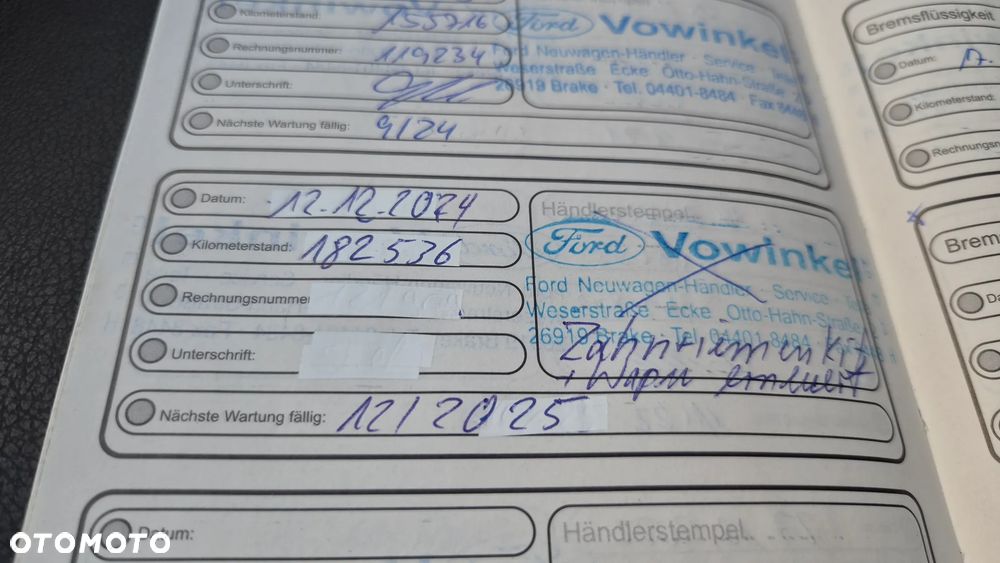 Kilometerstand: 155716
Rechnungsnummer: 119234
Unterschrift:
Nächste Wartung fällig: 9/24
Ford Vowinkel
Ford Neuwagen-Händler · Service ·
Weserstraße Ecke Otto-Hahn-Straße
26919 Brake · Tel. 04401-8484 · Fax
Datum: 12.12.2024
Kilometerstand: 182536
Rechnungsnummer
Unterschrift:
Nächste Wartung fällig: 12/2025
Händlerstempel
Ford Vowinkel
Ford Neuwagen-Händler · Service ·
Weserstraße Ecke Otto-Hahn-Straße
26919 Brake · Tel. 04401-8484
Zahnriemen Kit
+ Wapu erneuert
Datum:
Händlerstempel
Bremsflüssigkeit
Datum: 17.
Kilometerstand:
Rechnungsn
Brem
Da
OTOMOTO